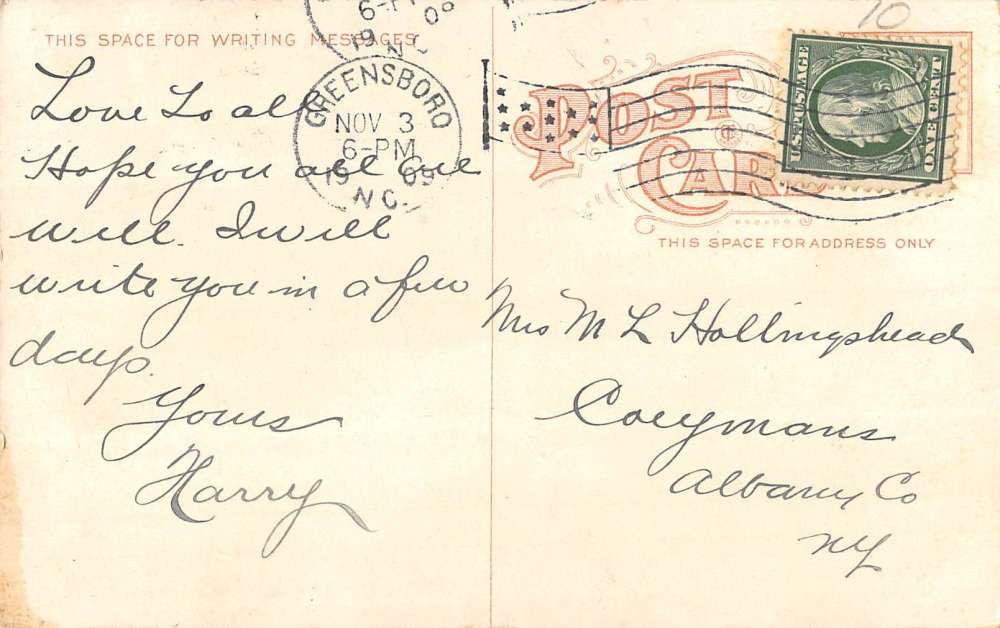 10
6-PM
19 09
N.C.
THIS SPACE FOR WRITING MESSAGES
GREENSBORO
NOV 3
6-PM
19 09
N.C.
Love to all
Hope you all are
well. I will
write you in a few
days.
Yours
Harry
POST
CARD
U.S. POSTAGE
ONE CENT
THIS SPACE FOR ADDRESS ONLY
Mrs M L Hollingshead
Coeymans
Albany Co
NY